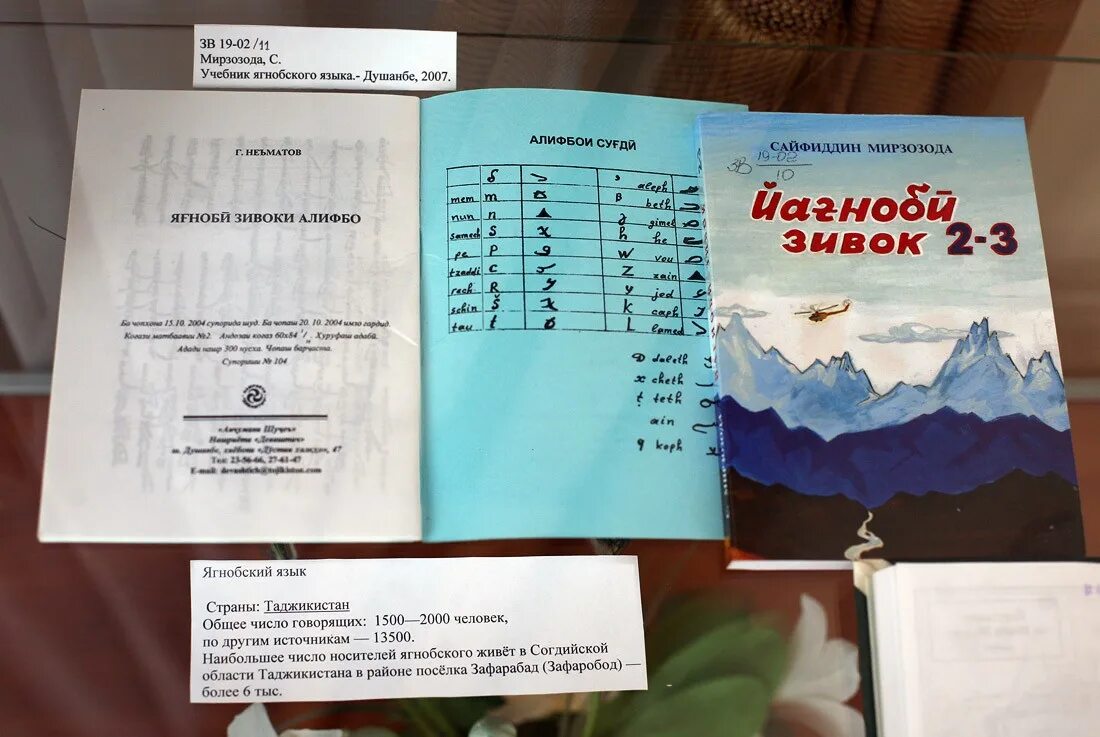 ЗВ 19-02/11
Мирзозода, С.
Учебник ягнобского языка.- Душанбе, 2007.
Г. НЕЪМАТОВ
ЯҒНОБӢ ЗИВОКИ АЛИФБО
Ба чопхона 15.10. 2004 супорида шуд. Ба чопаш 20. 10. 2004 имзо гардид.
Коғази матбаавии №2. Андозаи коғаз 60х84 1/16 Хуруфаш адабӣ.
Адади нашр 300 нусха. Чопаш барҷаста.
Супориши № 104
«Анҷумани Шуҷоъ»
Нашриёти «Деваштич»
ш. Душанбе, хиёбони «Дӯстии халқҳо», 47
Тел: 23-56-66, 27-61-47
E-mail: devashtich@tojikiston.com
АЛИФБОИ СУҒДӢ
δ
aleph
mem m
B beth
nun n
gimel
samech S
h he
pe P
W vou
tzaddi C
Z zain
rech R
y jod
schin Š
k caph
tau ṭ
L lamed
D daleth
x cheth
ṭ teth
ain
q koph
САЙФИДДИН МИРЗОЗОДА
ЗВ 19-02
10
Йағнобӣ
зивок 2-3
Ягнобский язык
Страны: Таджикистан
Общее число говорящих: 1500—2000 человек,
по другим источникам — 13500.
Наибольшее число носителей ягнобского живёт в Согдийской
области Таджикистана в районе посёлка Зафарабад (Зафаробод) —
более 6 тыс.